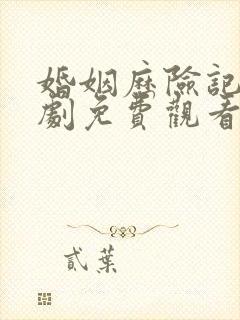 婚姻歷險記
劇免費觀看
貳葉